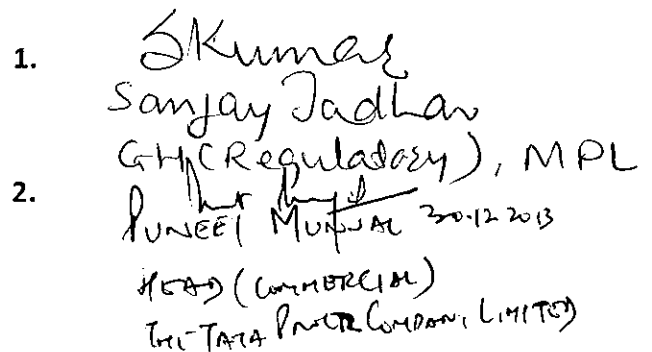 1. SKumar
Sanjay Jadhav
GH(Regulatory), MPL
2.
PUNEET MUNJAL 30.12.2013
HEAD (COMMERCIAL)
THE TATA POWER COMPANY LIMITED